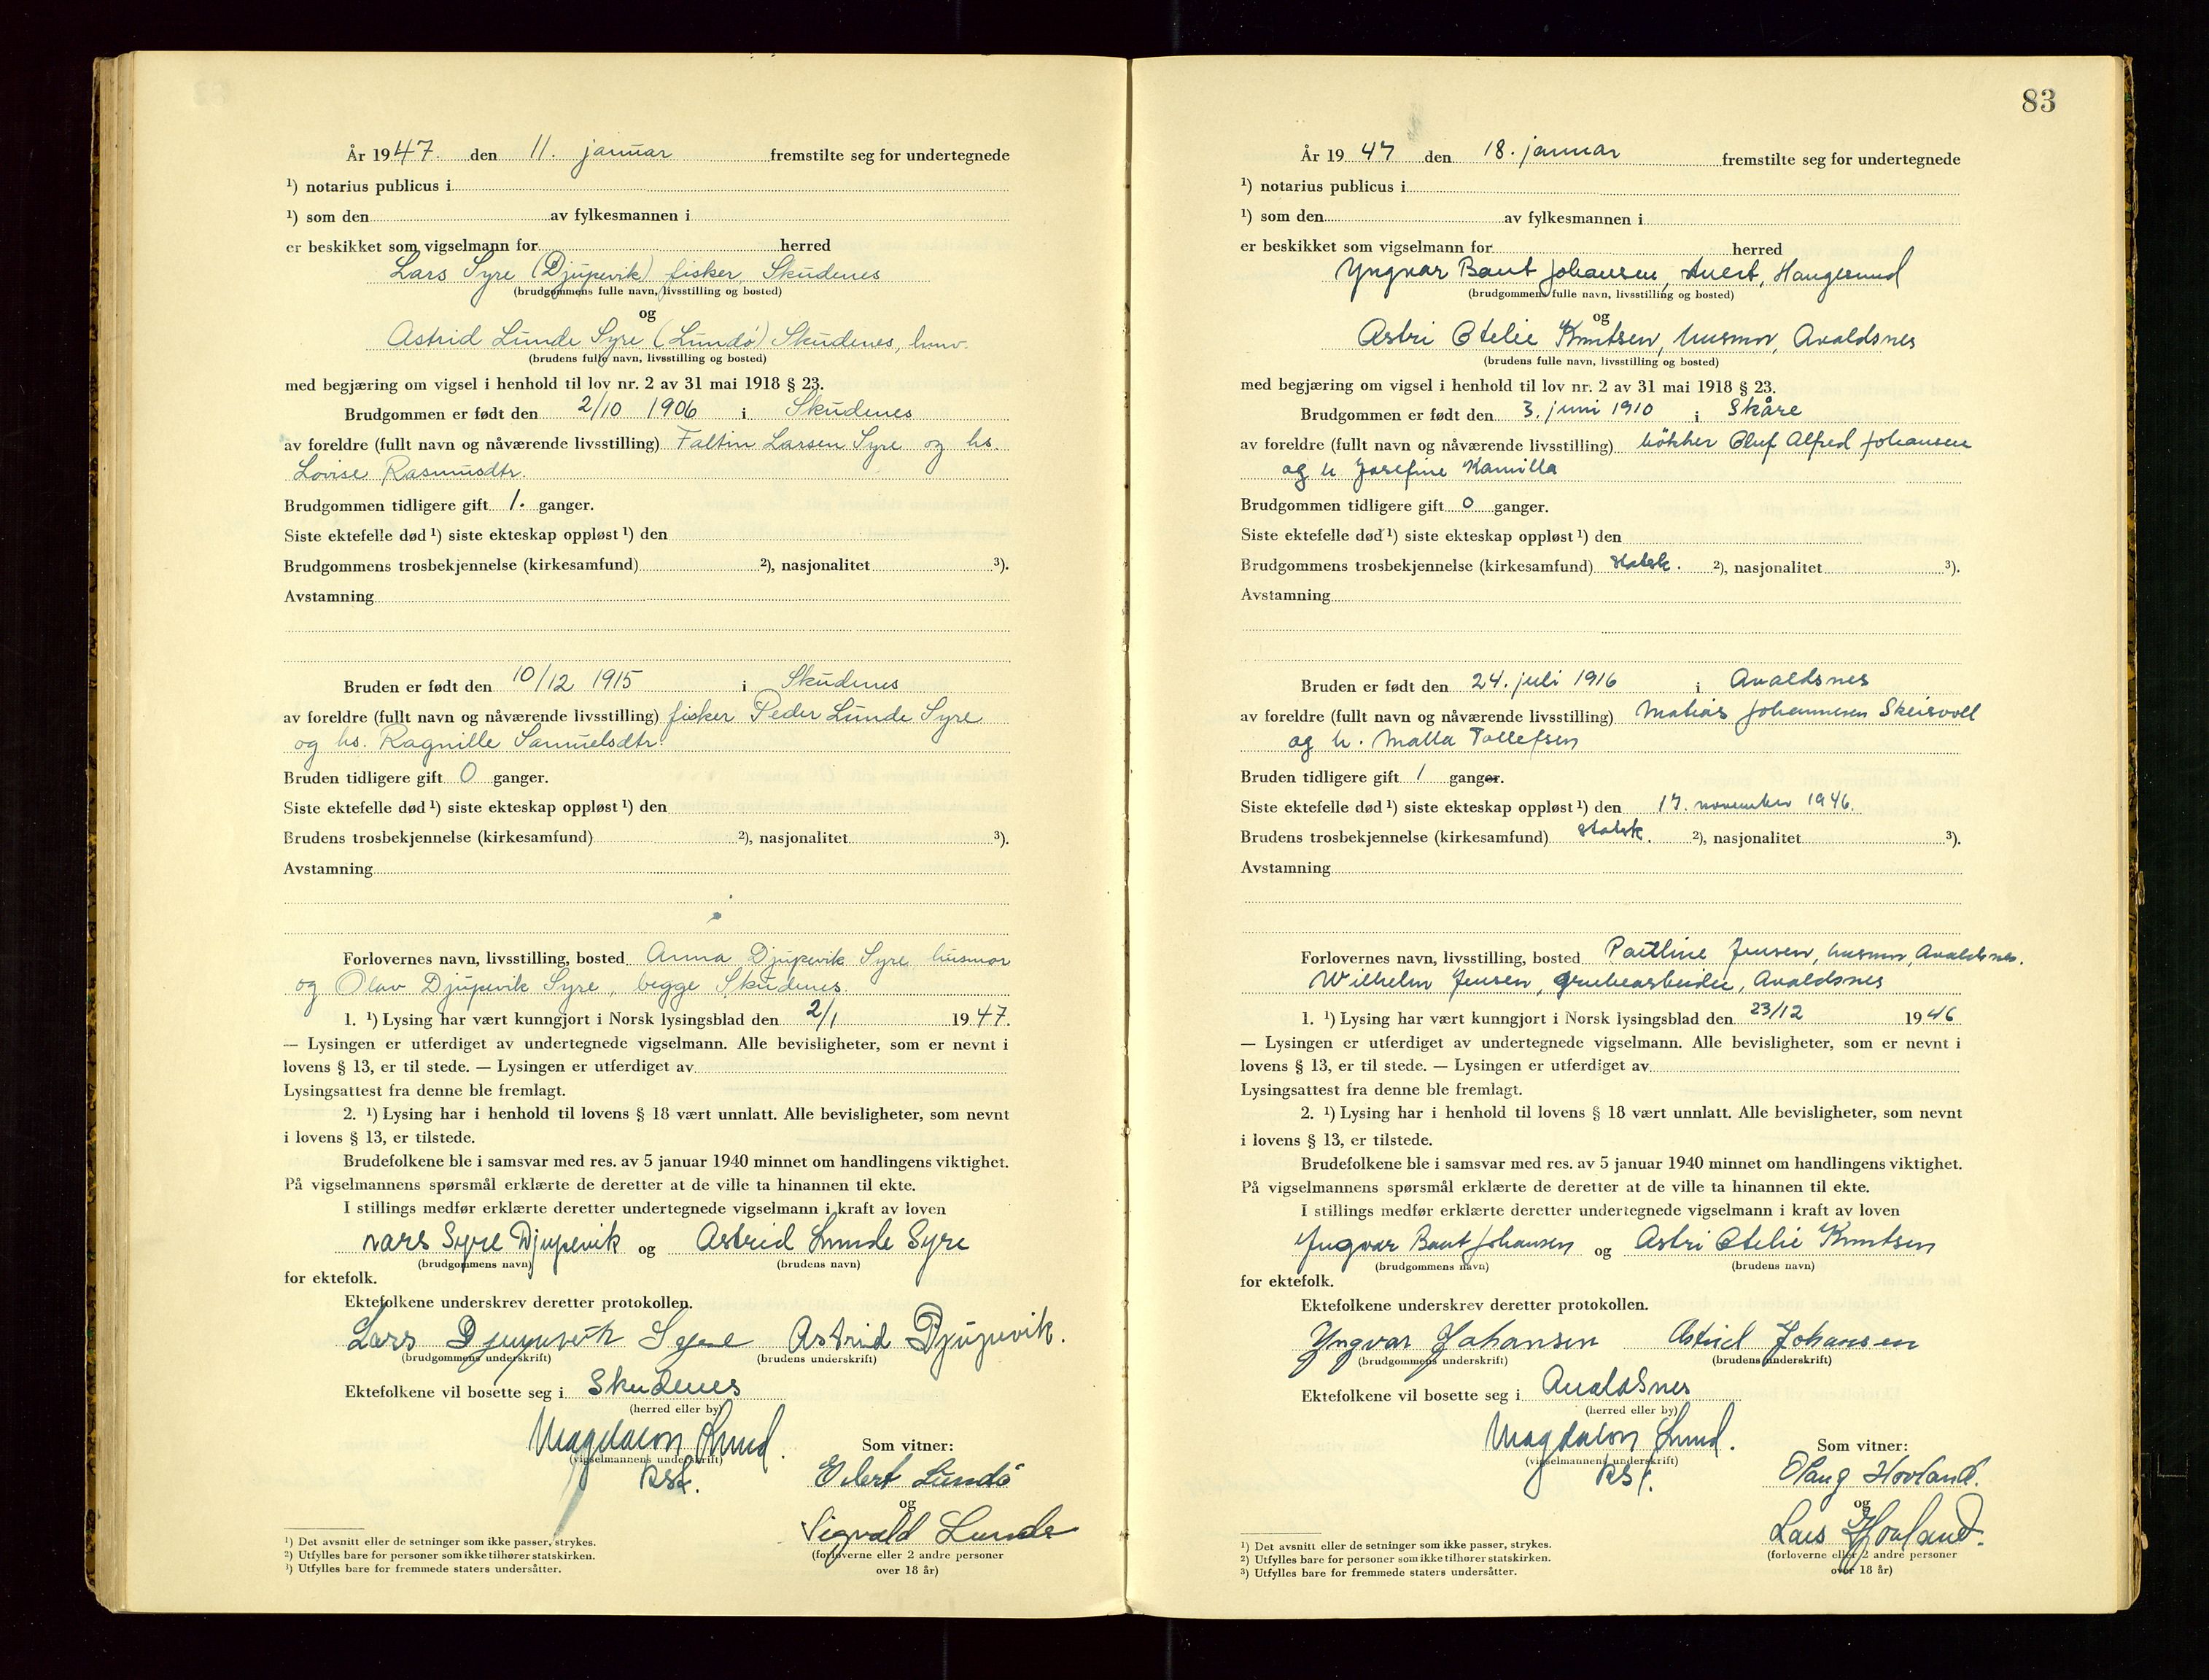 År 1947. den 11. januar fremstilte seg for undertegnede
¹) notarius publicus i
¹) som den av fylkesmannen i
er beskikket som vigselmann for herred
Lars Syre (Djupevik) fisker, Skudenes
(brudgommens fulle navn, livsstilling og bosted)
og
Astrid Lunde Syre (Lundö) Skudenes,
(brudens fulle navn, livsstilling og bosted)
med begjæring om vigsel i henhold til lov nr. 2 av 31 mai 1918 § 23.
Brudgommen er født den 2/10 1906 i Skudenes
av foreldre (fullt navn og nåværende livsstilling) Faltin Larsen Syre og hs.
Lovise Rasmusdtr.
Brudgommen tidligere gift 1. ganger.
Siste ektefelle død ¹) siste ekteskap oppløst ¹) den
Brudgommens trosbekjennelse (kirkesamfund) ²), nasjonalitet ³).
Avstamning
Bruden er født den 10/12 1915 i Skudenes
av foreldre (fullt navn og nåværende livsstilling) fisker Peder Lunde Syre
og hs. Ragnille Samuelsdtr.
Bruden tidligere gift 0 ganger.
Siste ektefelle død ¹) siste ekteskap oppløst ¹) den
Brudens trosbekjennelse (kirkesamfund) ²), nasjonalitet ³).
Avstamning
Forlovernes navn, livsstilling, bosted Anna Djupevik Syre husmor
og Olav Djupevik Syre, begge Skudenes.
1. ¹) Lysing har vært kunngjort i Norsk lysingsblad den 2/1 1947.
— Lysingen er utferdiget av undertegnede vigselmann. Alle bevisligheter, som er nevnt i
lovens § 13, er til stede. — Lysingen er utferdiget av
Lysingsattest fra denne ble fremlagt.
2. ¹) Lysing har i henhold til lovens § 18 vært unnlatt. Alle bevisligheter, som nevnt
i lovens § 13, er tilstede.
Brudefolkene ble i samsvar med res. av 5 januar 1940 minnet om handlingens viktighet.
På vigselmannens spørsmål erklærte de deretter at de ville ta hinannen til ekte.
I stillings medfør erklærte deretter undertegnede vigselmann i kraft av loven
Lars Syre Djupevik og Astrid Lunde Syre
(brudgommens navn) (brudens navn)
for ektefolk.
Ektefolkene underskrev deretter protokollen.
Lars Djupevik Syre Astrid Djupevik.
(brudgommens underskrift) (brudens underskrift)
Ektefolkene vil bosette seg i Skudenes
(herred eller by)
Magdalon Lund.
(vigselmannens underskrift)
kst.
Som vitner:
Eilert Lundö
og
Sigvald Lunde
(forloverne eller 2 andre personer
over 18 år)
¹) Det avsnitt eller de setninger som ikke passer, strykes.
²) Utfylles bare for personer som ikke tilhører statskirken.
³) Utfylles bare for fremmede staters undersåtter.
83
År 1947 den 18. januar fremstilte seg for undertegnede
¹) notarius publicus i
¹) som den av fylkesmannen i
er beskikket som vigselmann for herred
Yngvar Baut Johansen, Haugesund
(brudgommens fulle navn, livsstilling og bosted)
og
Astri Otelie Knutsen, husmor, Avaldsnes
(brudens fulle navn, livsstilling og bosted)
med begjæring om vigsel i henhold til lov nr. 2 av 31 mai 1918 § 23.
Brudgommen er født den 3. juni 1910 i Skåre
av foreldre (fullt navn og nåværende livsstilling) bökker Oluf Alfred Johansen
og h Josefine Kamilla
Brudgommen tidligere gift 0 ganger.
Siste ektefelle død ¹) siste ekteskap oppløst ¹) den
Brudgommens trosbekjennelse (kirkesamfund) statsk. ²), nasjonalitet ³).
Avstamning
Bruden er født den 24. juli 1916 i Avaldsnes
av foreldre (fullt navn og nåværende livsstilling) Matias Johannesen Skeisvoll
og h. Malla Tollefsen
Bruden tidligere gift 1 ganger.
Siste ektefelle død ¹) siste ekteskap oppløst ¹) den 17. november 1946.
Brudens trosbekjennelse (kirkesamfund) statsk. ²), nasjonalitet ³).
Avstamning
Forlovernes navn, livsstilling, bosted Pauline Jensen, husmor, Avaldsnes.
Wilhelm Jensen, grubearbeider, Avaldsnes
1. ¹) Lysing har vært kunngjort i Norsk lysingsblad den 23/12 1946
— Lysingen er utferdiget av undertegnede vigselmann. Alle bevisligheter, som er nevnt i
lovens § 13, er til stede. — Lysingen er utferdiget av
Lysingsattest fra denne ble fremlagt.
2. ¹) Lysing har i henhold til lovens § 18 vært unnlatt. Alle bevisligheter, som nevnt
i lovens § 13, er tilstede.
Brudefolkene ble i samsvar med res. av 5 januar 1940 minnet om handlingens viktighet.
På vigselmannens spørsmål erklærte de deretter at de ville ta hinannen til ekte.
I stillings medfør erklærte deretter undertegnede vigselmann i kraft av loven
Yngvar Baut Johansen og Astri Otelie Knutsen
(brudgommens navn) (brudens navn)
for ektefolk.
Ektefolkene underskrev deretter protokollen.
Yngvar Johansen Astrid Johansen
(brudgommens underskrift) (brudens underskrift)
Ektefolkene vil bosette seg i Avaldsnes
(herred eller by)
Magdalon Lund.
(vigselmannens underskrift)
kst.
Som vitner:
Olaug Hovland.
og
Lars Hovland.
(forloverne eller 2 andre personer
over 18 år)
¹) Det avsnitt eller de setninger som ikke passer, strykes.
²) Utfylles bare for personer som ikke tilhører statskirken.
³) Utfylles bare for fremmede staters undersåtter.